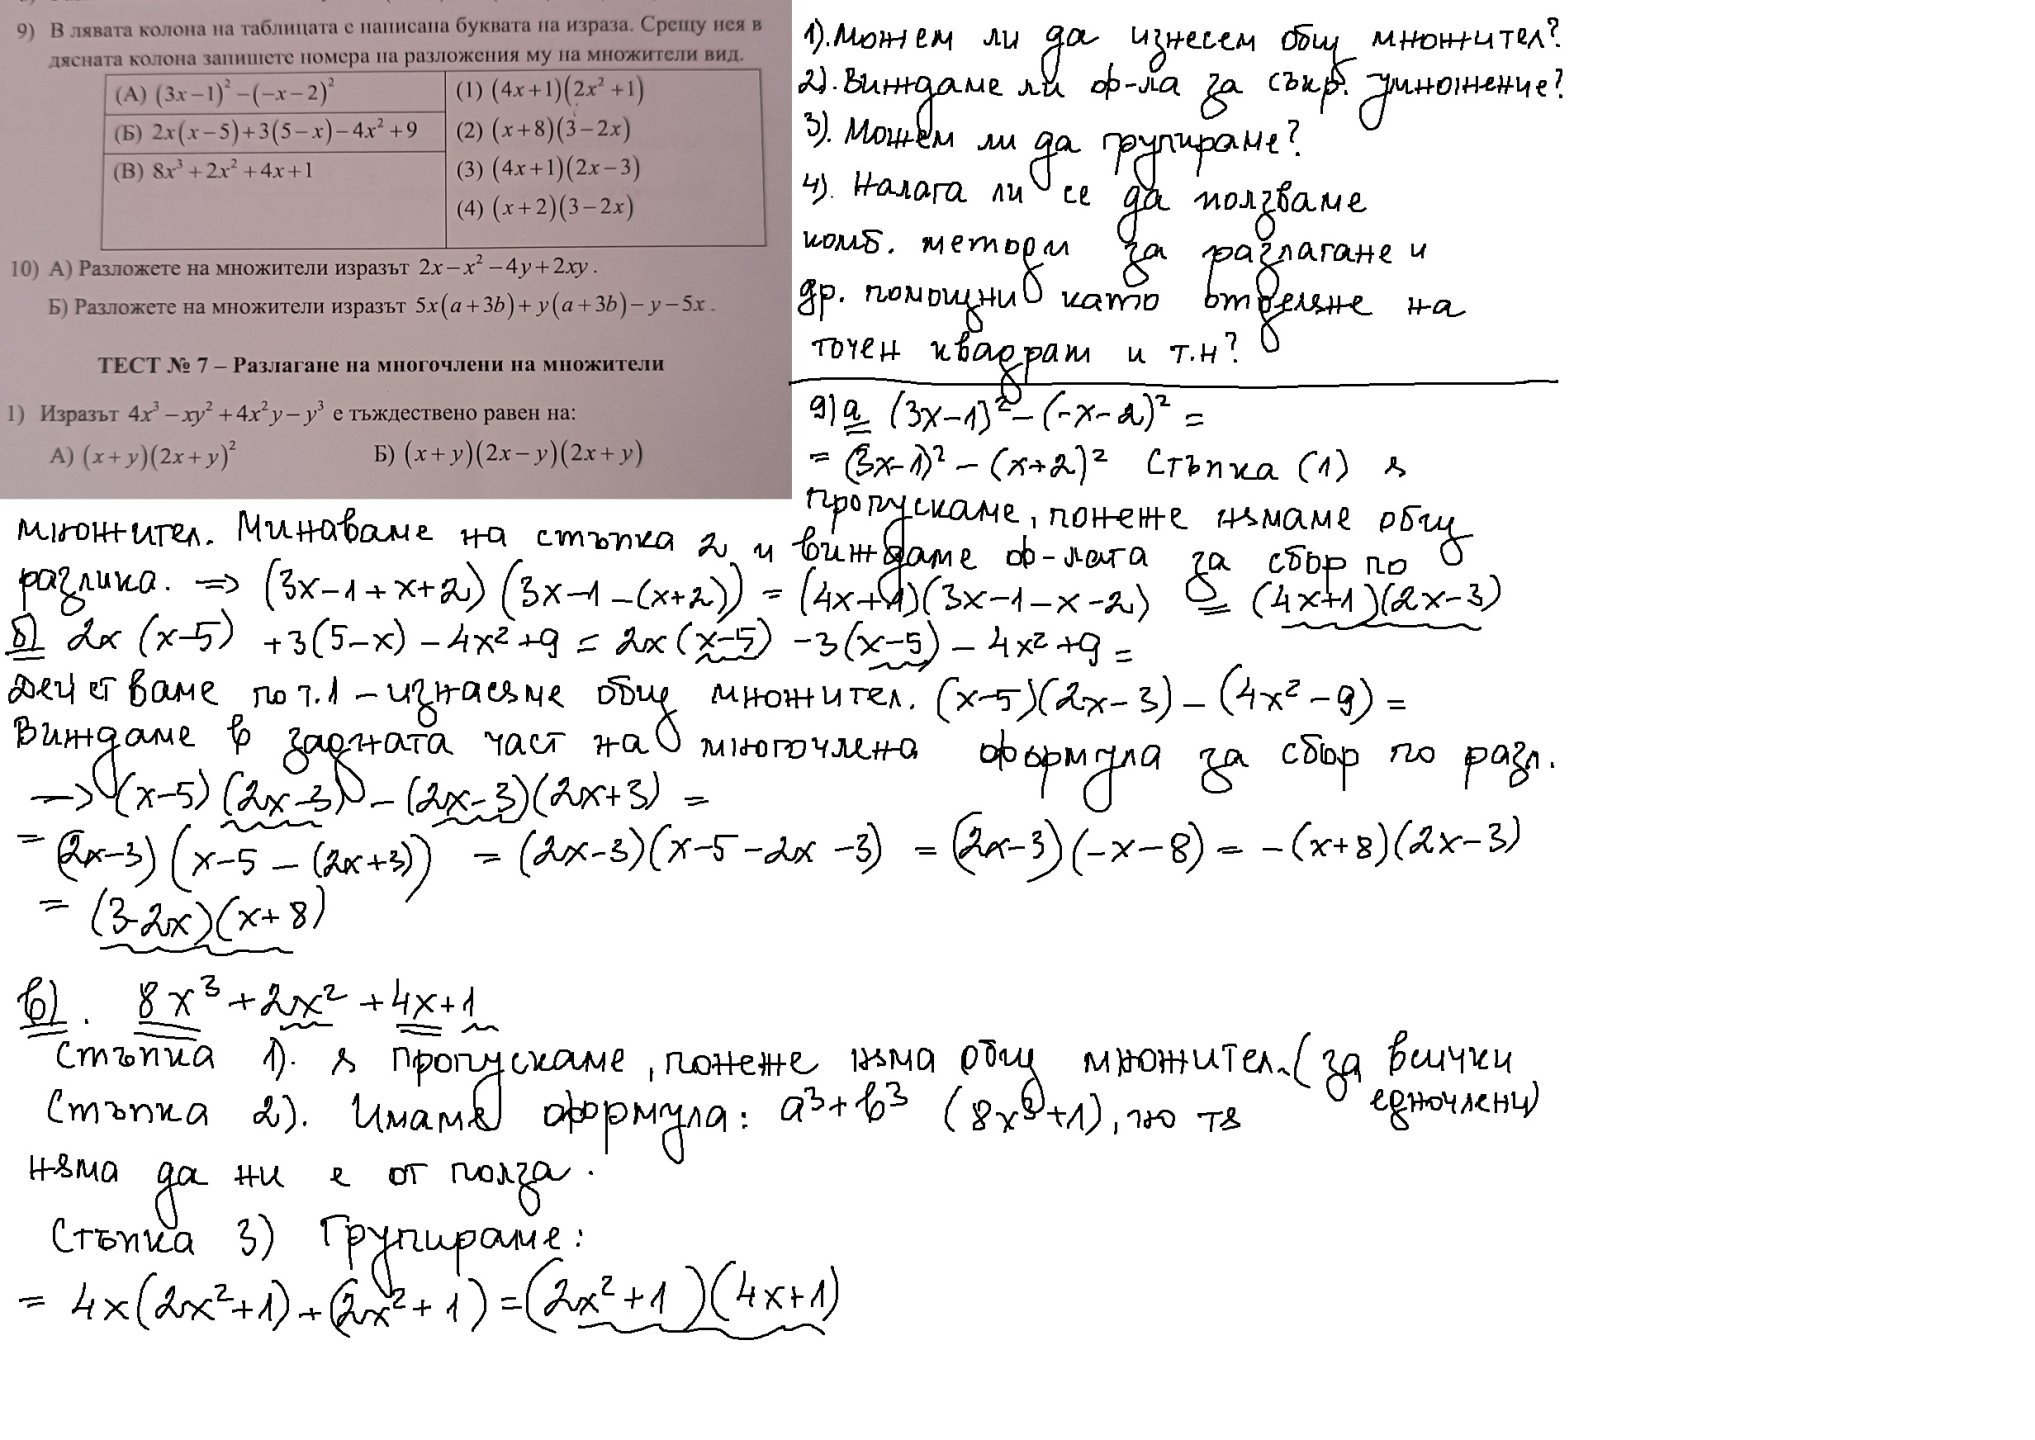 9) В лявата колона на таблицата е написана буквата на израза. Срещу нея в
дясната колона запишете номера на разложения му на множители вид.
(А) (3x−1)² −(−x−2)²
(Б) 2x(x−5)+3(5−x)−4x² +9
(В) 8x³ +2x² +4x+1
(1) (4x+1)(2x² +1)
(2) (x+8)(3−2x)
(3) (4x+1)(2x−3)
(4) (x+2)(3−2x)
10) А) Разложете на множители изразът 2x−x² −4y+2xy.
Б) Разложете на множители изразът 5x(a+3b)+y(a+3b)−y−5x.
ТЕСТ № 7 – Разлагане на многочлени на множители
1) Изразът 4x³ −xy² +4x²y−y³ е тъждествено равен на:
А) (x+y)(2x+y)² Б) (x+y)(2x−y)(2x+y)
1). Можем ли да изнесем общ множител?
2). Виждаме ли ф-ла за съкр. умножение?
3). Можем ли да групираме?
4). Налага ли се да ползваме
комб. методи за разлагане и
др. помощни като отделяне на
точен квадрат и т.н?
9) а (3x−1)² − (−x−2)² =
= (3x−1)² − (x+2)² Стъпка (1) я
пропускаме, понеже нямаме общ
множител. Минаваме на стъпка 2 и виждаме ф-лата за сбор по
разлика. ⇒ (3x−1+x+2)(3x−1−(x+2)) = (4x+1)(3x−1−x−2) = (4x+1)(2x−3)
б) 2x(x−5) +3(5−x) − 4x² +9 = 2x(x−5) −3(x−5) − 4x² +9 =
Действаме по т.1 – изнасяме общ множител. (x−5)(2x−3) − (4x² −9) =
Виждаме в задната част на многочлена формула за сбор по разл.
→ (x−5)(2x−3) − (2x−3)(2x+3) =
= (2x−3)(x−5 − (2x+3)) = (2x−3)(x−5−2x −3) = (2x−3)(−x−8) = −(x+8)(2x−3)
= (3−2x)(x+8)
в). 8x³ +2x² +4x+1
Стъпка 1). я пропускаме, понеже няма общ множител. (за всички
едночлени)
Стъпка 2). Имаме формула: a³+b³ (8x³+1), но тя
няма да ни е от полза.
Стъпка 3) Групираме:
= 4x(2x²+1)+(2x²+1) = (2x²+1)(4x+1)